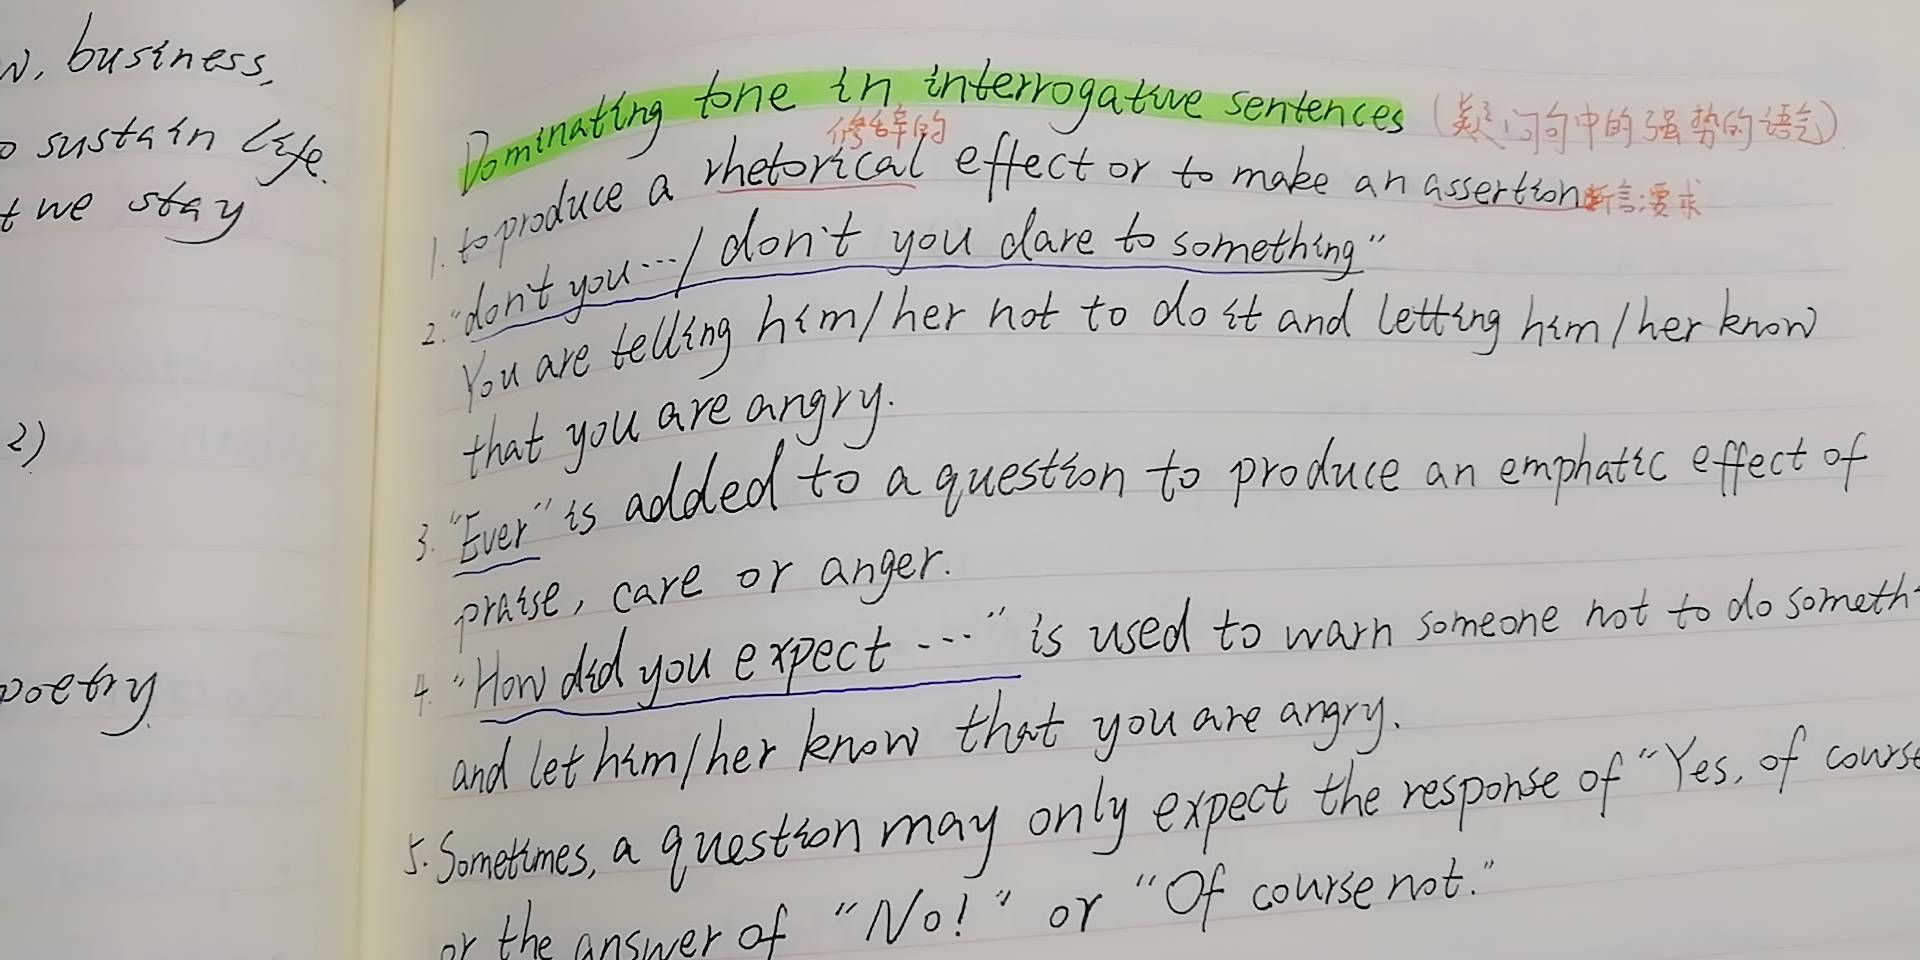 business,
sustain life.
we stay
2)
poetry.
Dominating tone in interrogative sentences (疑问句中的强势的语气)
修辞的
1. to produce a rhetorical effect or to make an assertion 断言;要求
2. "don't you.../don't you dare to something"
You are telling him/her not to do it and letting him/her know
that you are angry.
3. "Ever" is added to a question to produce an emphatic effect of
praise, care or anger.
4. "How did you expect ..." is used to warn someone not to do someth
and let him/her know that you are angry.
5. Sometimes, a question may only expect the response of "Yes, of course
or the answer of "No!" or "Of course not."